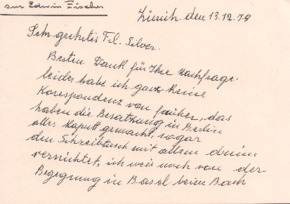 zur Edwin Fischer
Zürich, den 13.12.79
Sehr geehrtes Frl. Silver.
Besten Dank für Ihre Nachfrage.
leider habe ich gar keine
Korespondenz von früher, das
haben die Besatzung in Berlin
alles kaputt gemacht, sogar
den Schreibtisch mit allem drinn
vernichtet, ich weis noch von der
Begegnung in Basel beim Bach